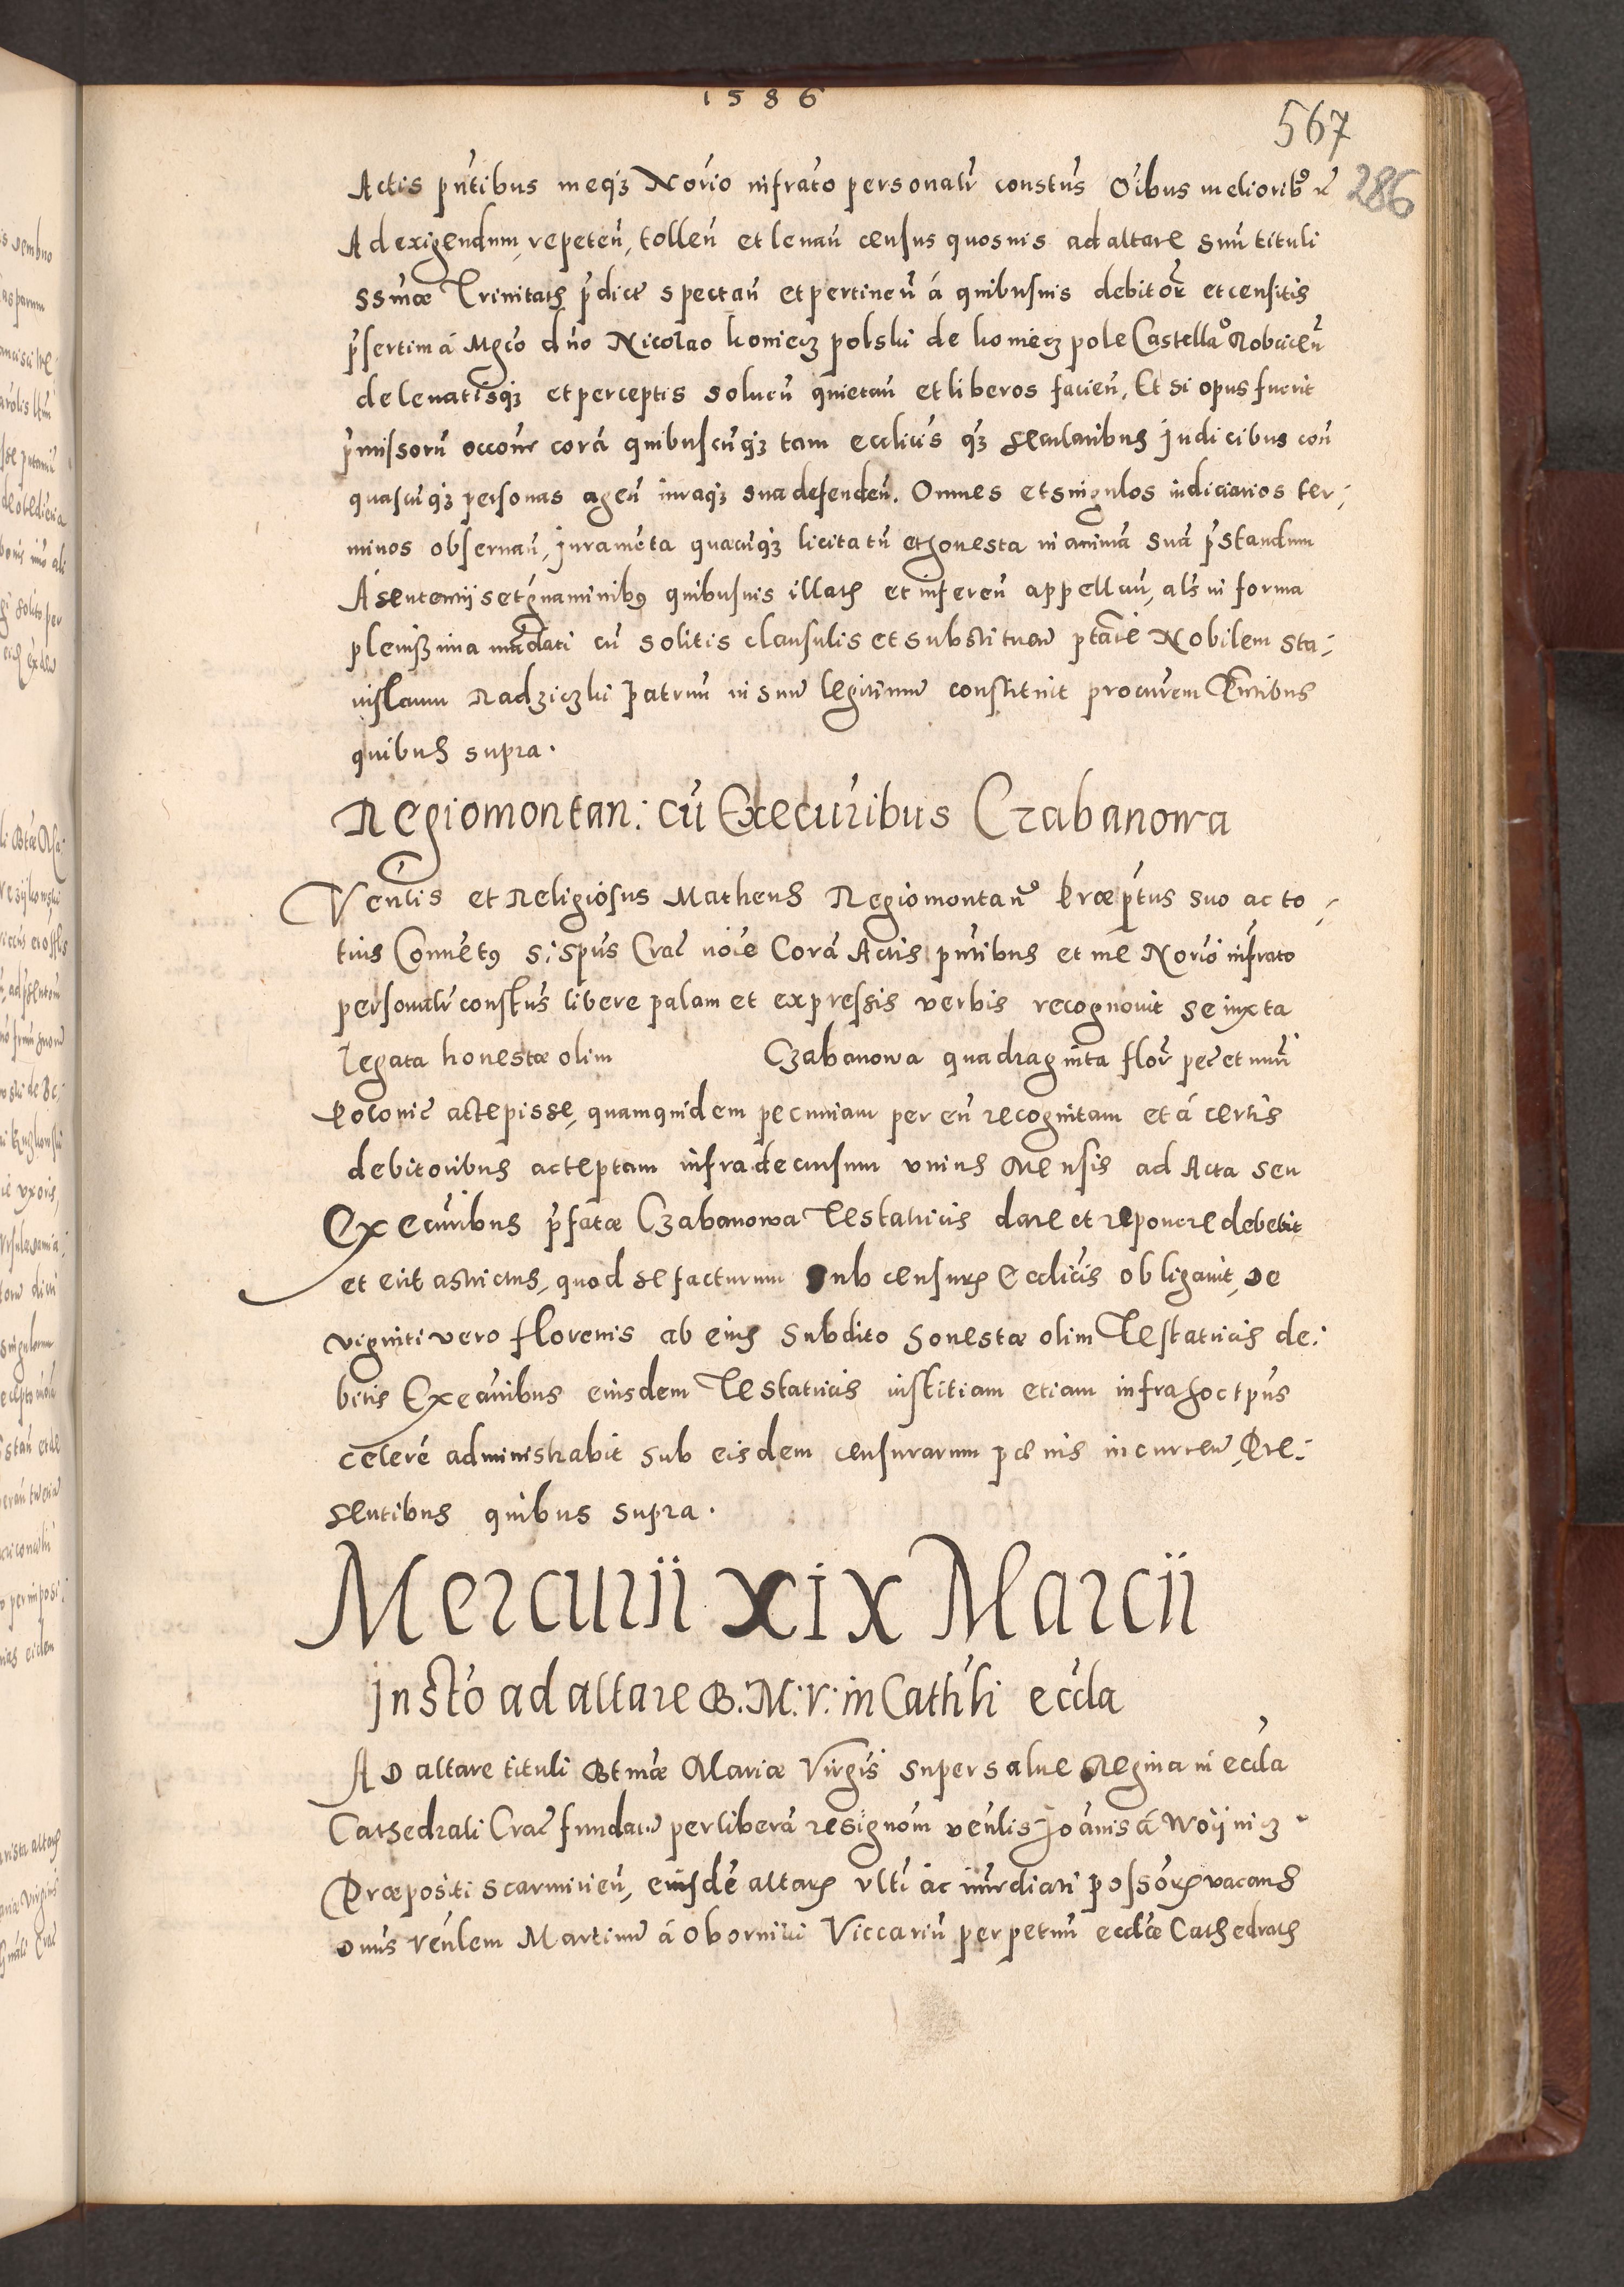 1586
567
286
Actis pñtibus meq3 Norio infrato personalr constus Oibus melioribo rc
Ad exigendum, repeteñ, tolleñ et levañ census quosvis ad altare suu tituli
ssmæ Trinitatis pdict spectañ et pertineñ á quibusvis debitor et censitis
psertim á Mgco dno Nicolao koniecz polski de koniecz pole Castella
de levatisq3 et perceptis solucñ quietañ et liberos facieñ, Et si opus fuerit
pmissorũ occone corá quibuscũq3 tam ecclicis q3 secularibus judicibus con
quascũq3 personas ageñ iuraq3 sua defendeñ. Omnes et singulos iudiciarios ter;
minos observañ, juraméta quæcũq3 licita tñ et honesta in animá suá pstandum
Á sententiis et gravaminibus quibusvis illatis et infereñ appellañ, als in forma
plenissima mãdati cũ solitis clausulis et substituañ ptaté Nobilem Sta;
nislaum Radziczki patruũ in suũ legitimũ constituit procurem Pñtibus
quibus supra.
Regiomontan: cũ Executribus Czabanowa
Venlis et Religiosus Matheus Regiomontano Præptus suo ac to;
tius Convẽtus S: Spus Crac noie Corá Actis pñtibus et me Norio infrato
personalr constus libere palam et expressis verbis recognovit se iuxta
legata honestæ olim Czabanowa quadraginta flor pec et nuũ
Polonic accepisse, quamquidem pecuniam per eũ recognitam et á certis
debitoribus acceptam infra decursum unius Mensis ad Acta seu
Executribus pfatæ Czabanowa Testatricis dare et reponere debebit
et erit astrictus, quod se facturum sub censuris Ecclicis obligavit, De
viginti vero florenis ab eius subdito honestæ olim Testatricis de:
bitis Executribus eiusdem Testatricis iustitiam etiam infra hoc tpus
celeré administrabit sub eisdem censurarum pœnis incurreñ, Præ:
sentibus quibus supra.
Mercurii XIX Marcii
Insto ad altare B: M: V: in Cathli eccla
AD altare tituli Btmæ Mariæ Virgis super salve Regina in eccla
Cathedrali Crac fundatũ per liberá resignom venlis Joánis á Woijnicz
Præpositi Scarmirieñ, eiusdé altaris ulti ac immediati possoris vacans
Dnus Venlem Martinũ á Oborniki Viccariũ perpetuũ ecclæ Cathedralis